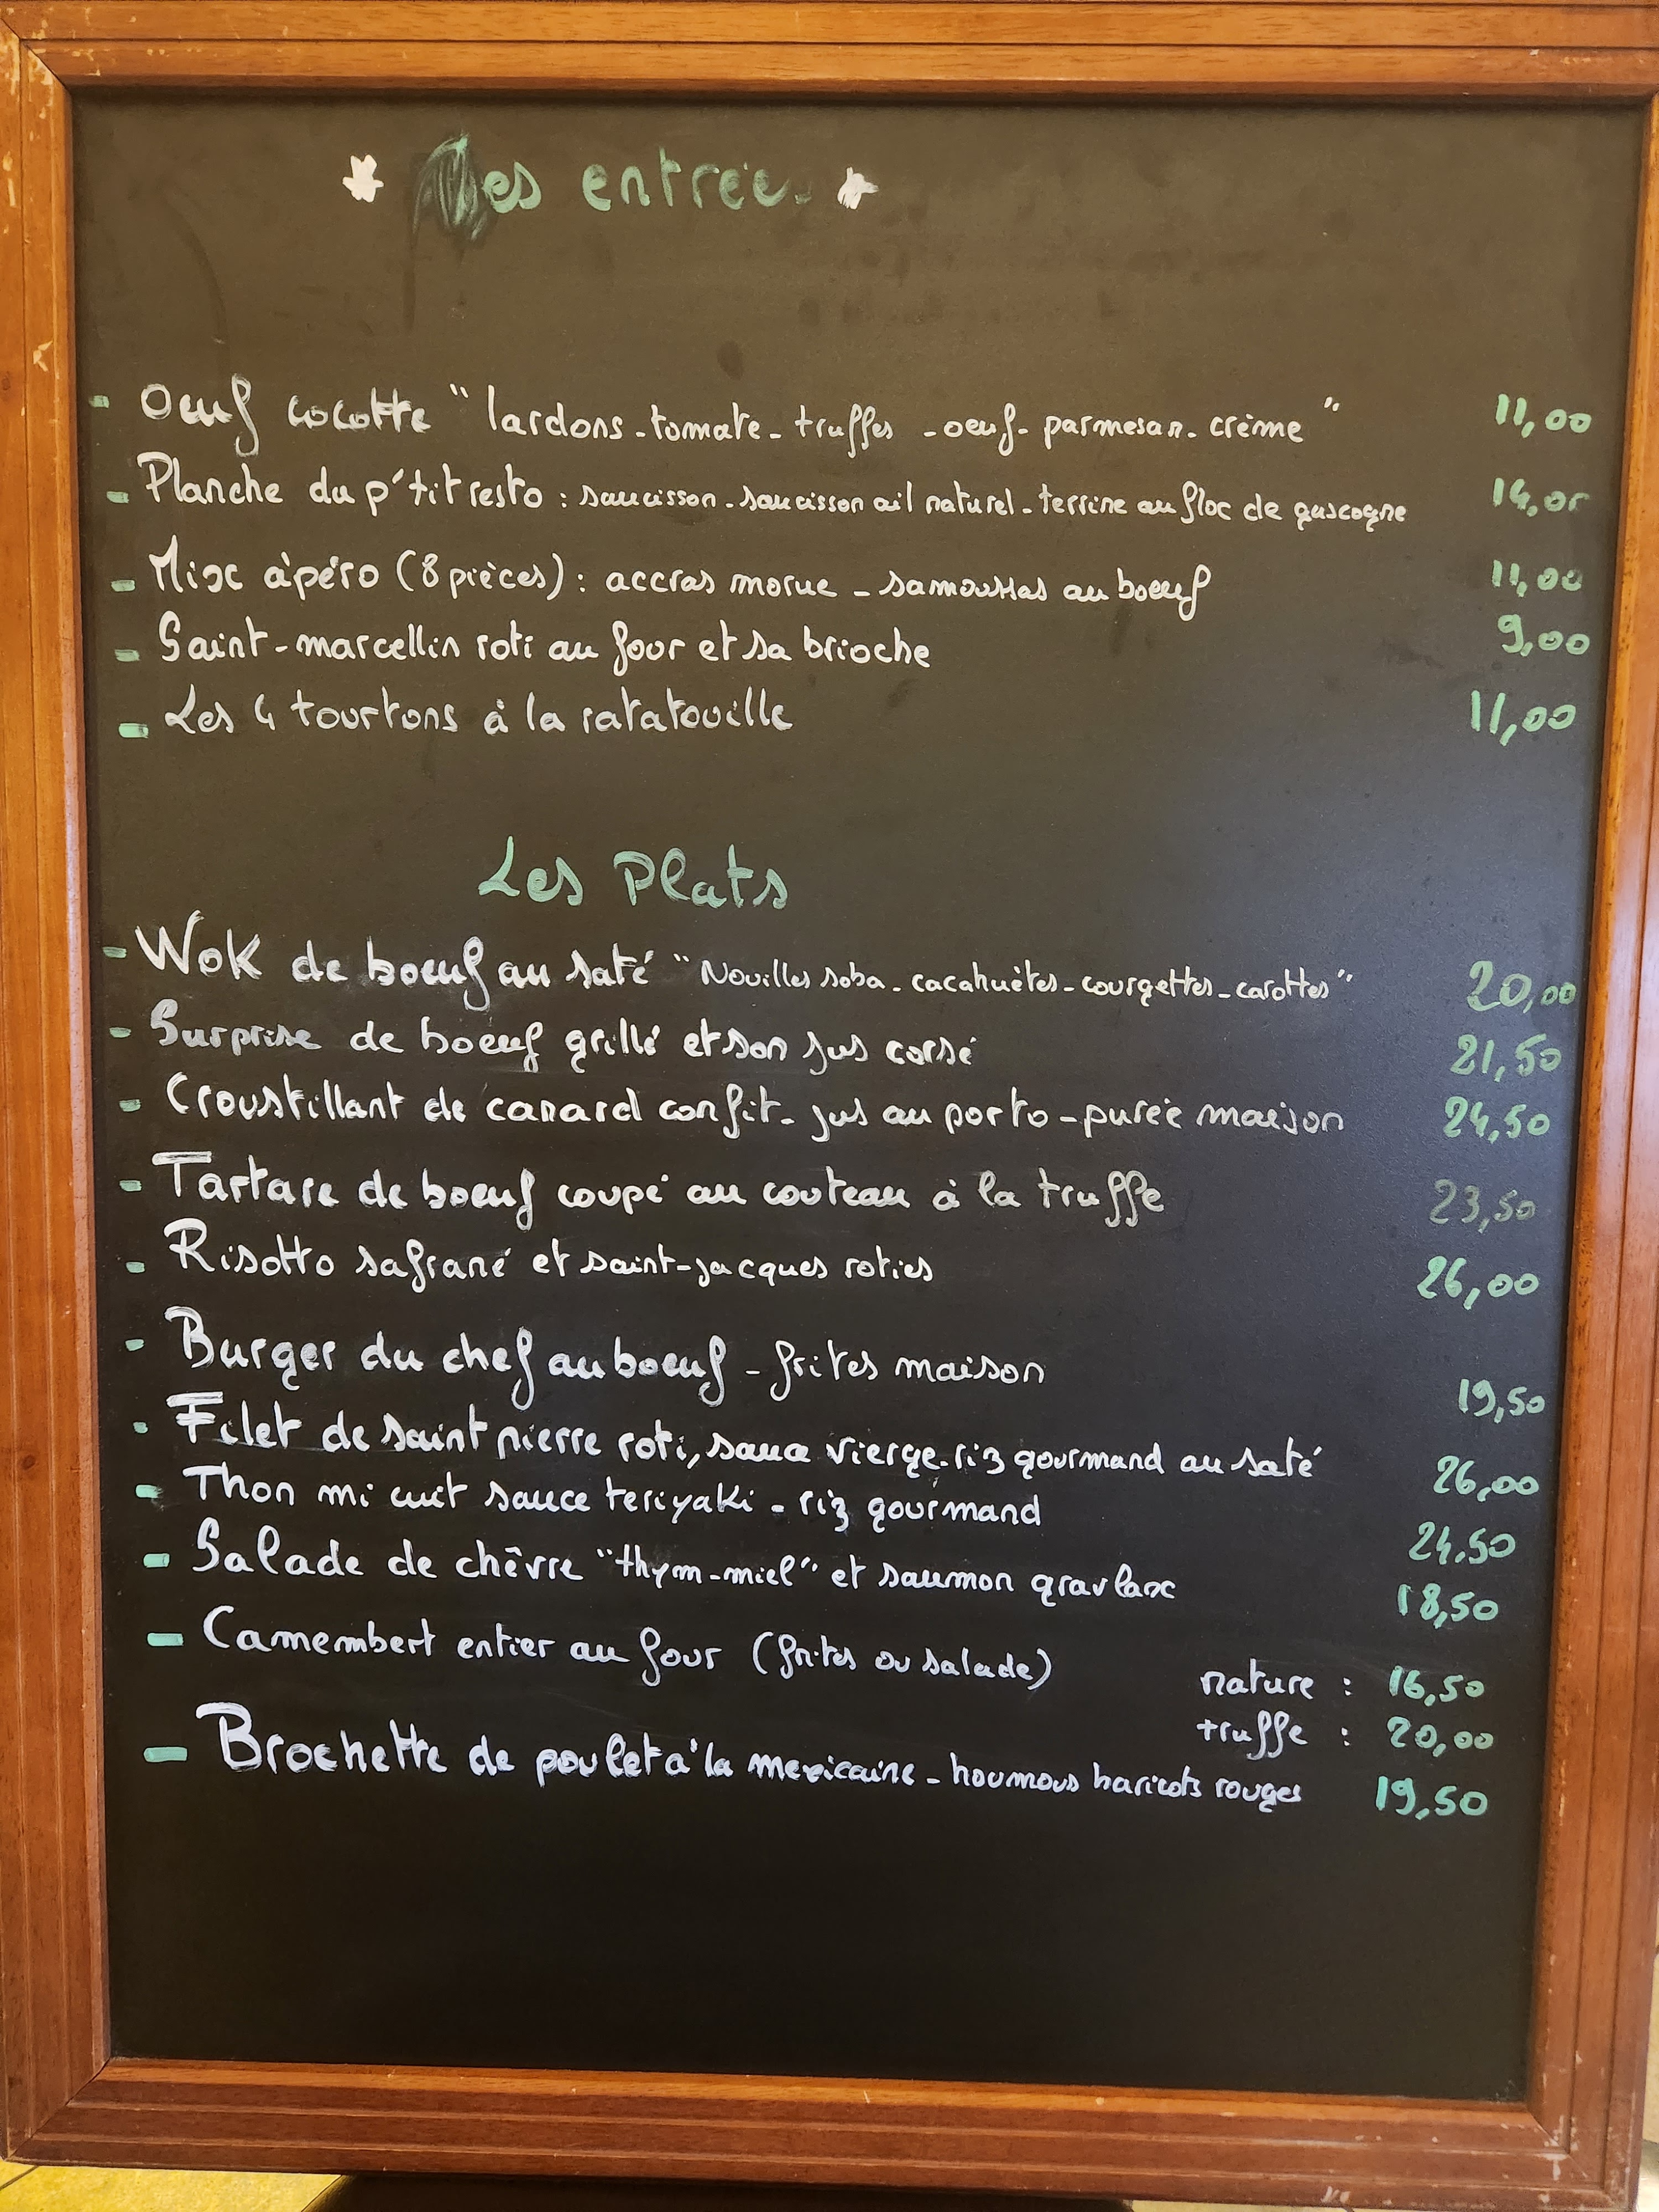 es entrée
- Oeuf cocotte "lardons - tomate - truffes - oeuf - parmesan - crème" 11,00
- Planche du p'tit resto : saucisson - saucisson ail naturel - terrine au floc de gascogne 14,00
- Mix àpéro (8 pièces) : accras morue - samoussas au boeuf 11,00
- Saint-marcellin roti au four et sa brioche 9,00
- Les 4 tourtons à la ratatouille 11,00
Les Plats
- Wok de boeuf au saté "Nouilles soba - cacahuètes - courgettes - carottes" 20,00
- Surprise de boeuf grillé et son jus corsé 21,50
- Croustillant de canard confit - jus au porto - purée maison 24,50
- Tartare de boeuf coupé au couteau à la truffe 23,50
- Risotto safrané et saint-jacques roties 26,00
- Burger du chef au boeuf - frites maison 19,50
- Filet de saint pierre roti, sauce vierge - riz gourmand au saté 26,00
- Thon mi cuit sauce teriyaki - riz gourmand 24,50
- Salade de chêvre "thym-miel" et saumon gravlax 18,50
- Camembert entier au four (frites ou salade) nature : 16,50
truffe : 20,00
- Brochette de poulet à la mexicaine - houmous haricots rouges 19,50